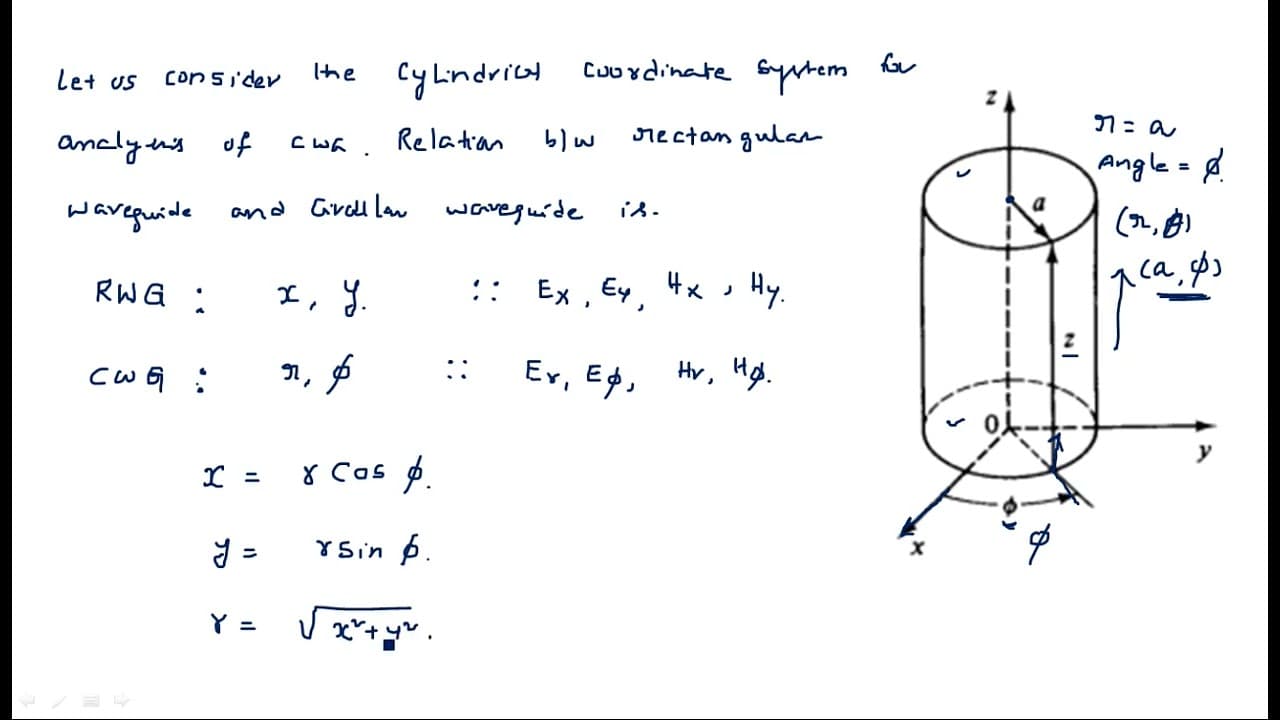 Let us consider the Cylindrical Coordinate System for
analysis of CWG. Relation b/w rectangular
waveguide and Circular waveguide is.
RWG : x, y. :: Ex, Ey, Hx, Hy.
CWG : r, ϕ :: Er, Eϕ, Hr, Hϕ.
x = r Cos ϕ.
y = r Sin ϕ.
r = √x²+y².
z
a
r = a
Angle = ϕ.
(r, ϕ)
(a, ϕ)
z
0
y
ϕ
x
ϕ